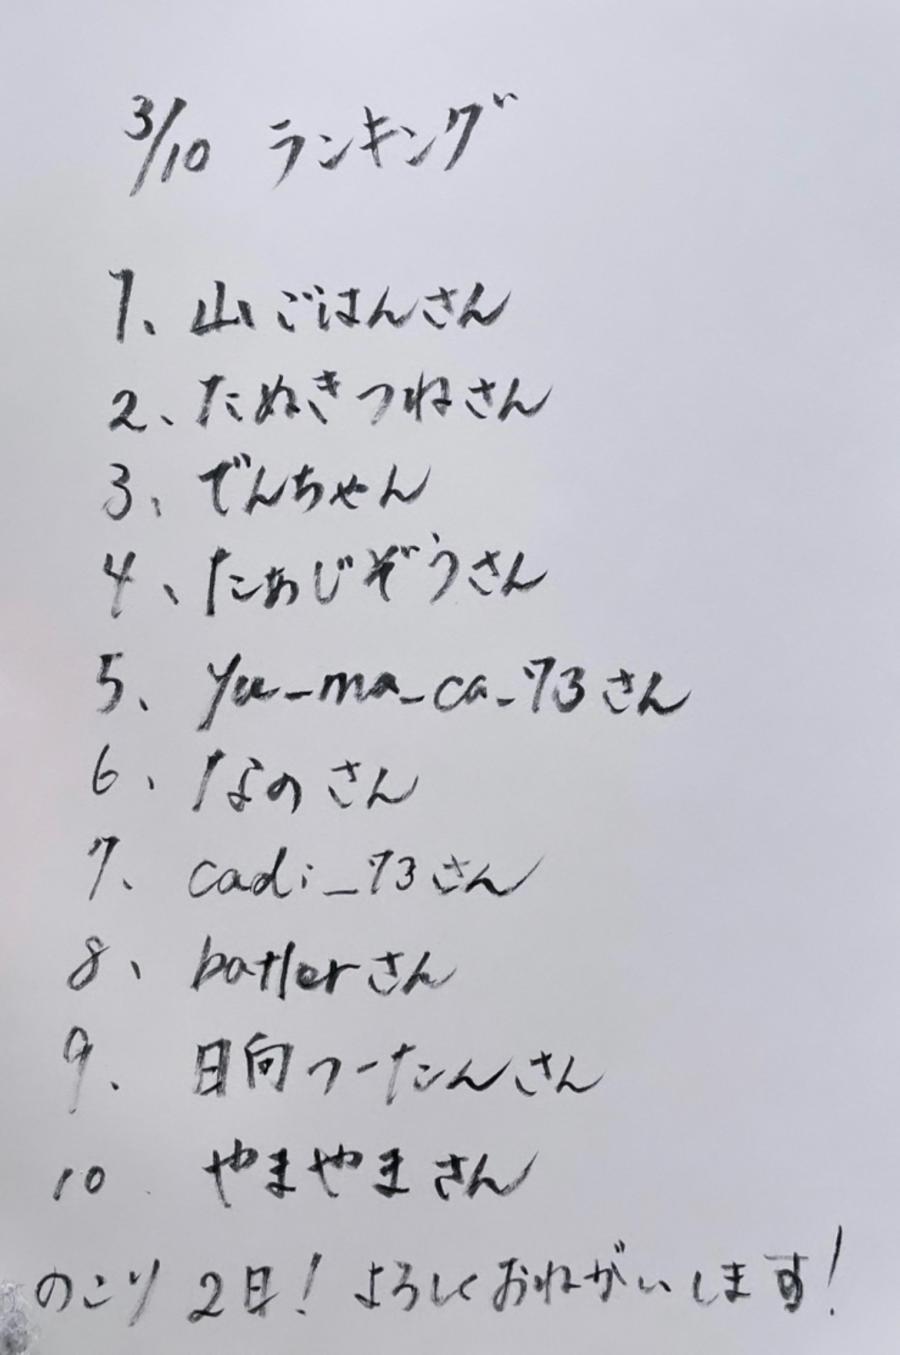 3/10 ランキング
1、山ごはんさん
2、たぬきつねさん
3、でんちゃん
4、たあじぞうさん
5、yu_ma_ca_73さん
6、なのさん
7、cadi_73さん
8、batlerさん
9、日向つーたんさん
10 やまやまさん
のこり2日!よろしくおねがいします!